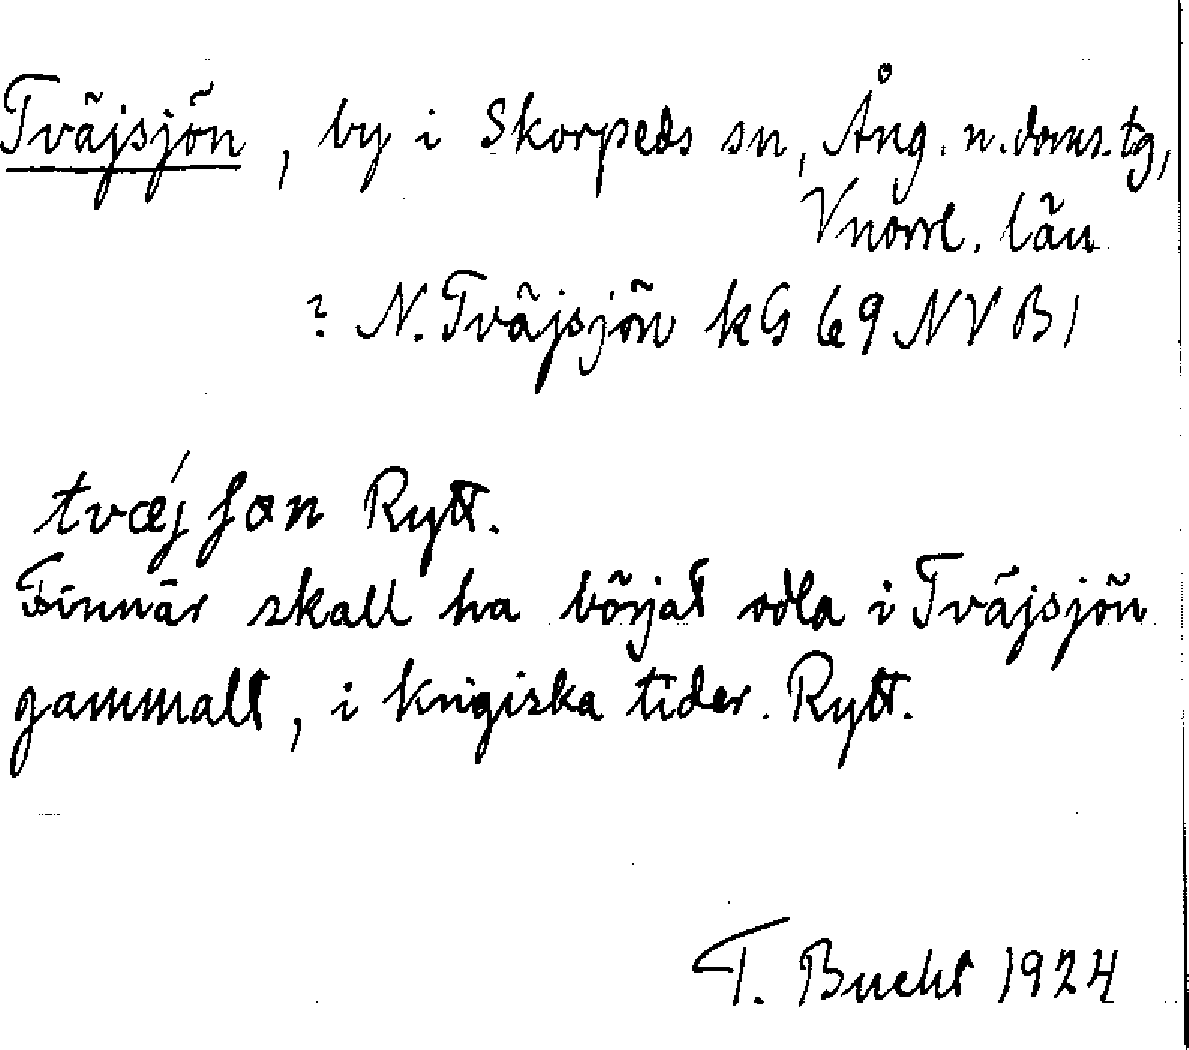 Tväjsjön, by i Skorpeds sn, Ång. n. doms.tg,
Vnorrl. län
? N. Tväjsjön kG 69 NV B1
tvæ´j ʃɑn Rytt.
Finnar skall ha börjat odla i Tväjsjön
gammalt, i krigiska tider. Rytt.
T. Bucht 1924